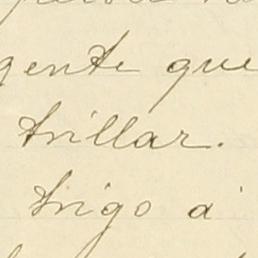 gente que
trillar.
trigo á